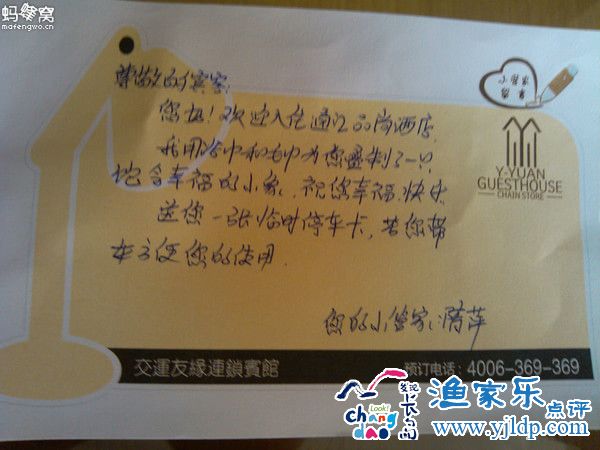 蚂蜂窝
mafengwo.cn
小管家
留言
尊敬的宾客：
您好！欢迎入住通江品尚酒店。
我用浴巾和毛巾为您叠制了一只
包含幸福的小象，祝您幸福、快乐
送您一张临时停车卡，若您帮
车方便您的使用.
您的小管家：
Y-YUAN
GUESTHOUSE
CHAIN STORE
交運友緣連鎖賓館
预订电话：4006-369-369
Look!
chang
dao
发现
长岛
渔家乐
点评
www.yjldp.com